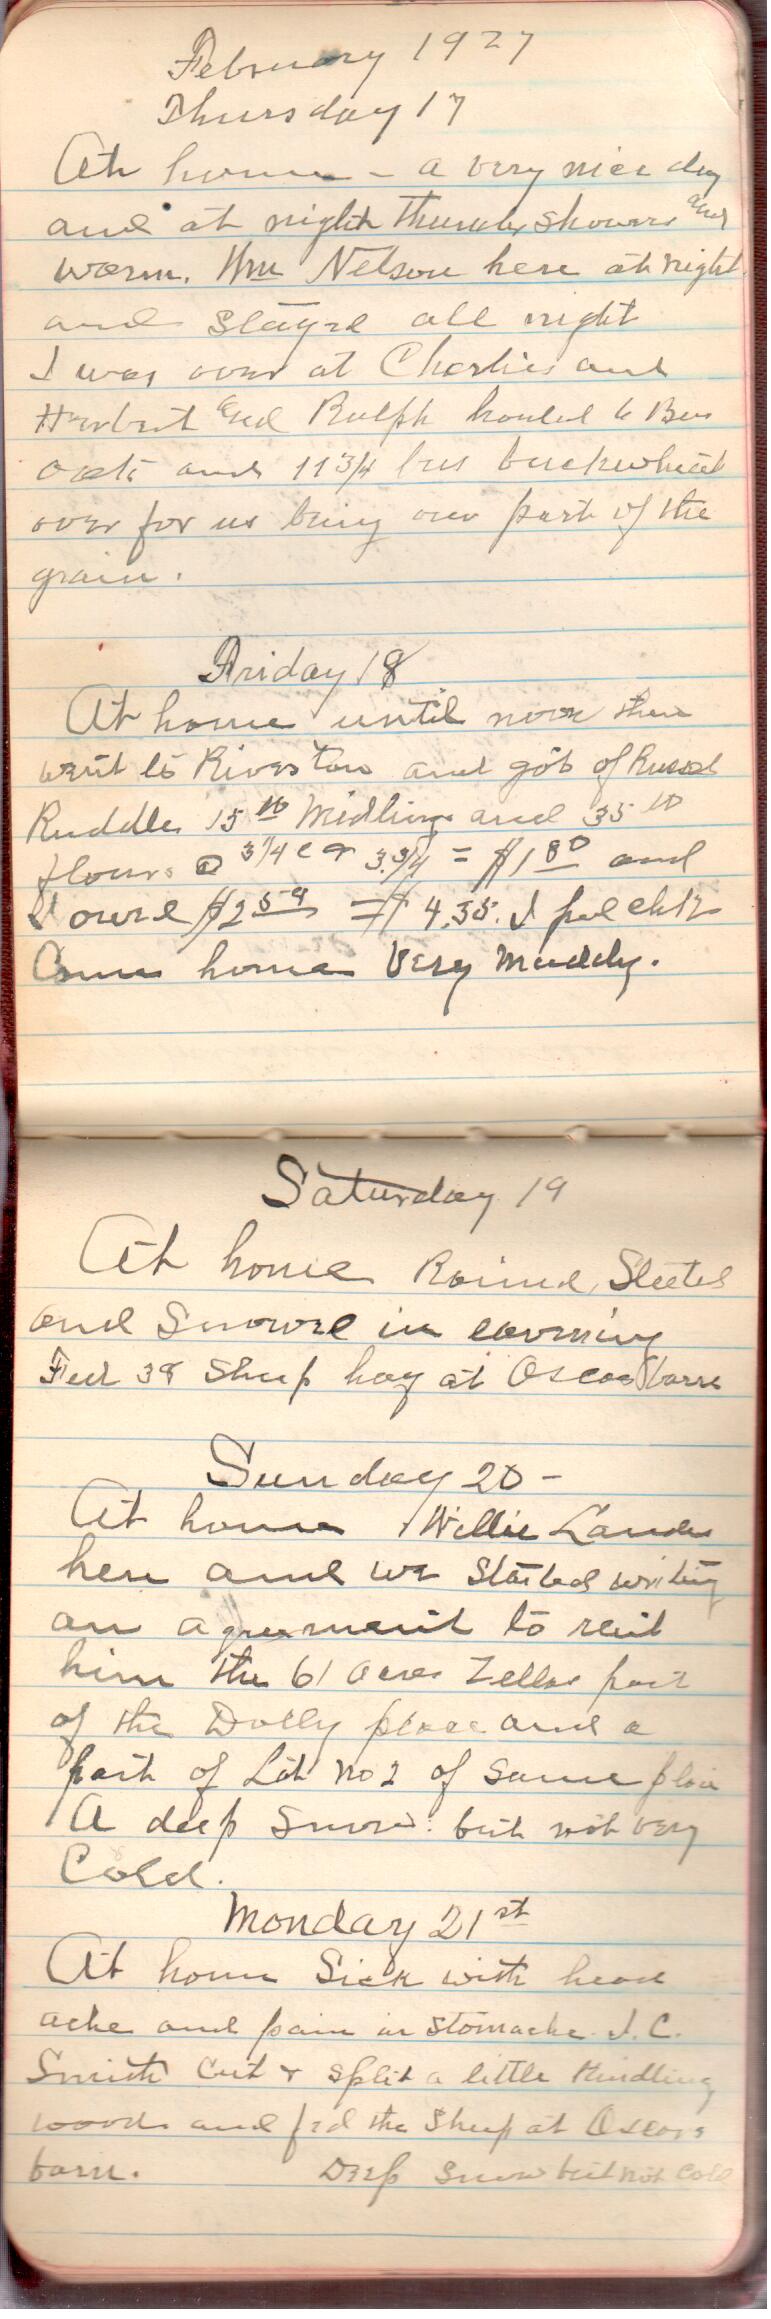 February 1927
Thursday 17
At home - a very nice day
and at night thunder showers and
warm. Wm Nelson here at night
and stayed all night
I was over at Charlies and
Herbert and Ralph hauled 6 Bus
oats and 11 3/4 bus buckwheat
over for us being our part of the
grain.
Friday 18
At home until noon then
went to Riverton and got of
Ruddle 15 lb Midlings and 35 lb
flour @ 3 3/4 = $1 80 and
I owed $2 = $4.35. I pd
Came home Very Muddy.
Saturday 19
At home Rained, Sleeted
and Snowed in evening
Fed 38 Sheep hay at Oscar barn
Sunday 20 -
At home Willie Landes
here and we started writing
an agreement to rent
him the 61 acres Zellas part
of the Dolly place and a
part of Lot No 2 of same place
A deep snow but not very
Cold.
Monday 21st
At home Sick with head
ache and pain in stomache. J. C.
Smith Cut & split a little Kindling
wood and fed the Sheep at Oscars
barn. Deep Snow but not Cold